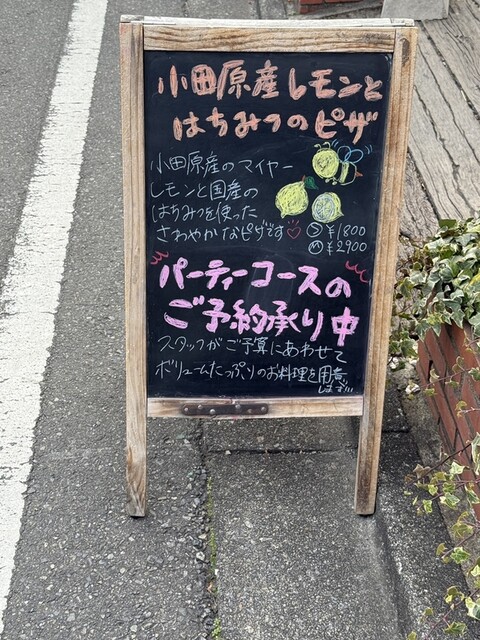 小田原産レモンと
はちみつのピザ
小田原産のマイヤー
レモンと国産の
はちみつを使った
さわやかなピザです♡
Ⓢ¥1800
Ⓜ¥2900
パーティーコースの
ご予約承り中
スタッフがご予算にあわせて
ボリュームたっぷりのお料理を用意
します!!!